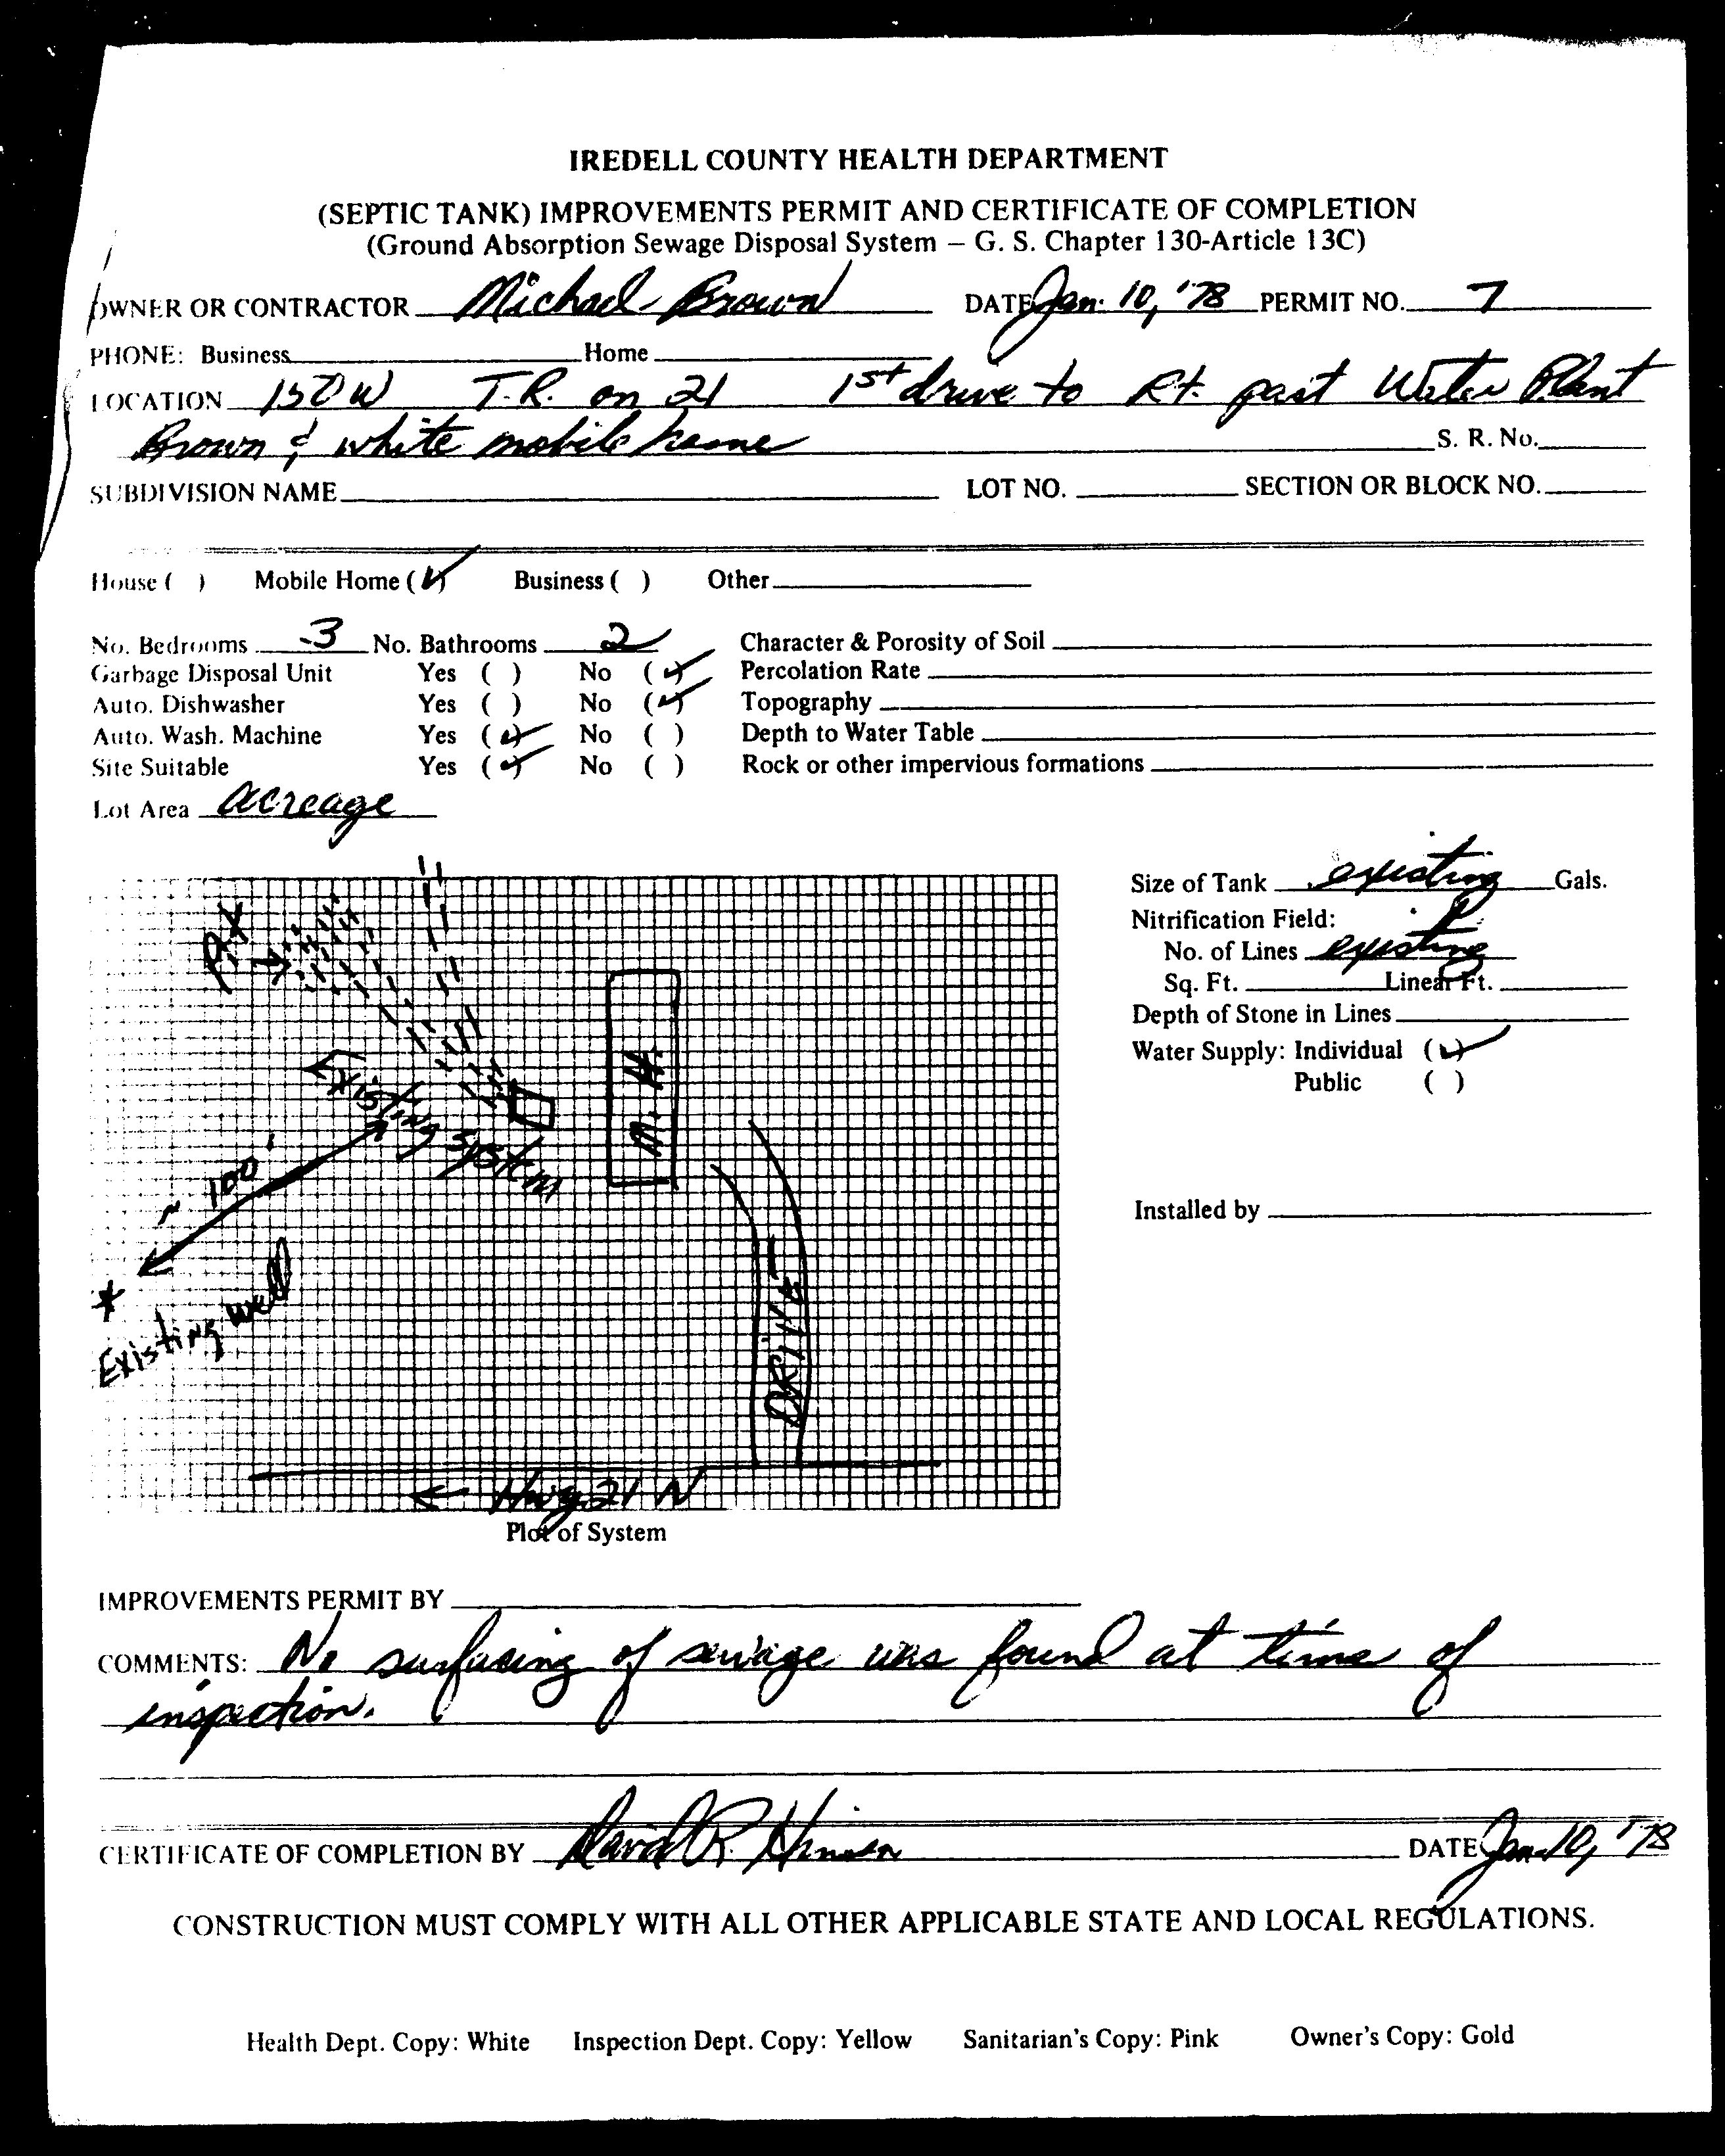 IREDELL COUNTY HEALTH DEPARTMENT
(SEPTIC TANK) IMPROVEMENTS PERMIT AND CERTIFICATE OF COMPLETION
(Ground Absorption Sewage Disposal System – G. S. Chapter 130-Article 13C)
OWNER OR CONTRACTOR Michael Brown DATE Jan. 10, '78 PERMIT NO. 7
PHONE: Business Home
LOCATION 150 W T.R. on 21 1st drive to Rt. past Water Plant
Brown & white mobile home S. R. No.
SUBDIVISION NAME LOT NO. SECTION OR BLOCK NO.
House ( ) Mobile Home (✓) Business ( ) Other
No. Bedrooms 3 No. Bathrooms 2 Character & Porosity of Soil
Garbage Disposal Unit Yes ( ) No (✓) Percolation Rate
Auto. Dishwasher Yes ( ) No (✓) Topography
Auto. Wash. Machine Yes (✓) No ( ) Depth to Water Table
Site Suitable Yes (✓) No ( ) Rock or other impervious formations
Lot Area acreage
Size of Tank existing Gals.
Nitrification Field:
No. of Lines existing
Sq. Ft. Linear Ft.
Depth of Stone in Lines
Water Supply: Individual (✓)
Public ( )
Installed by
M.H.
Existing System
~ 100'
Existing well
DRIVE
← Hwy 21 N
Plot of System
IMPROVEMENTS PERMIT BY
COMMENTS: No surfacing of sewage was found at time of
inspection.
CERTIFICATE OF COMPLETION BY David R. DATE Jan. 10, '78
CONSTRUCTION MUST COMPLY WITH ALL OTHER APPLICABLE STATE AND LOCAL REGULATIONS.
Health Dept. Copy: White Inspection Dept. Copy: Yellow Sanitarian's Copy: Pink Owner's Copy: Gold